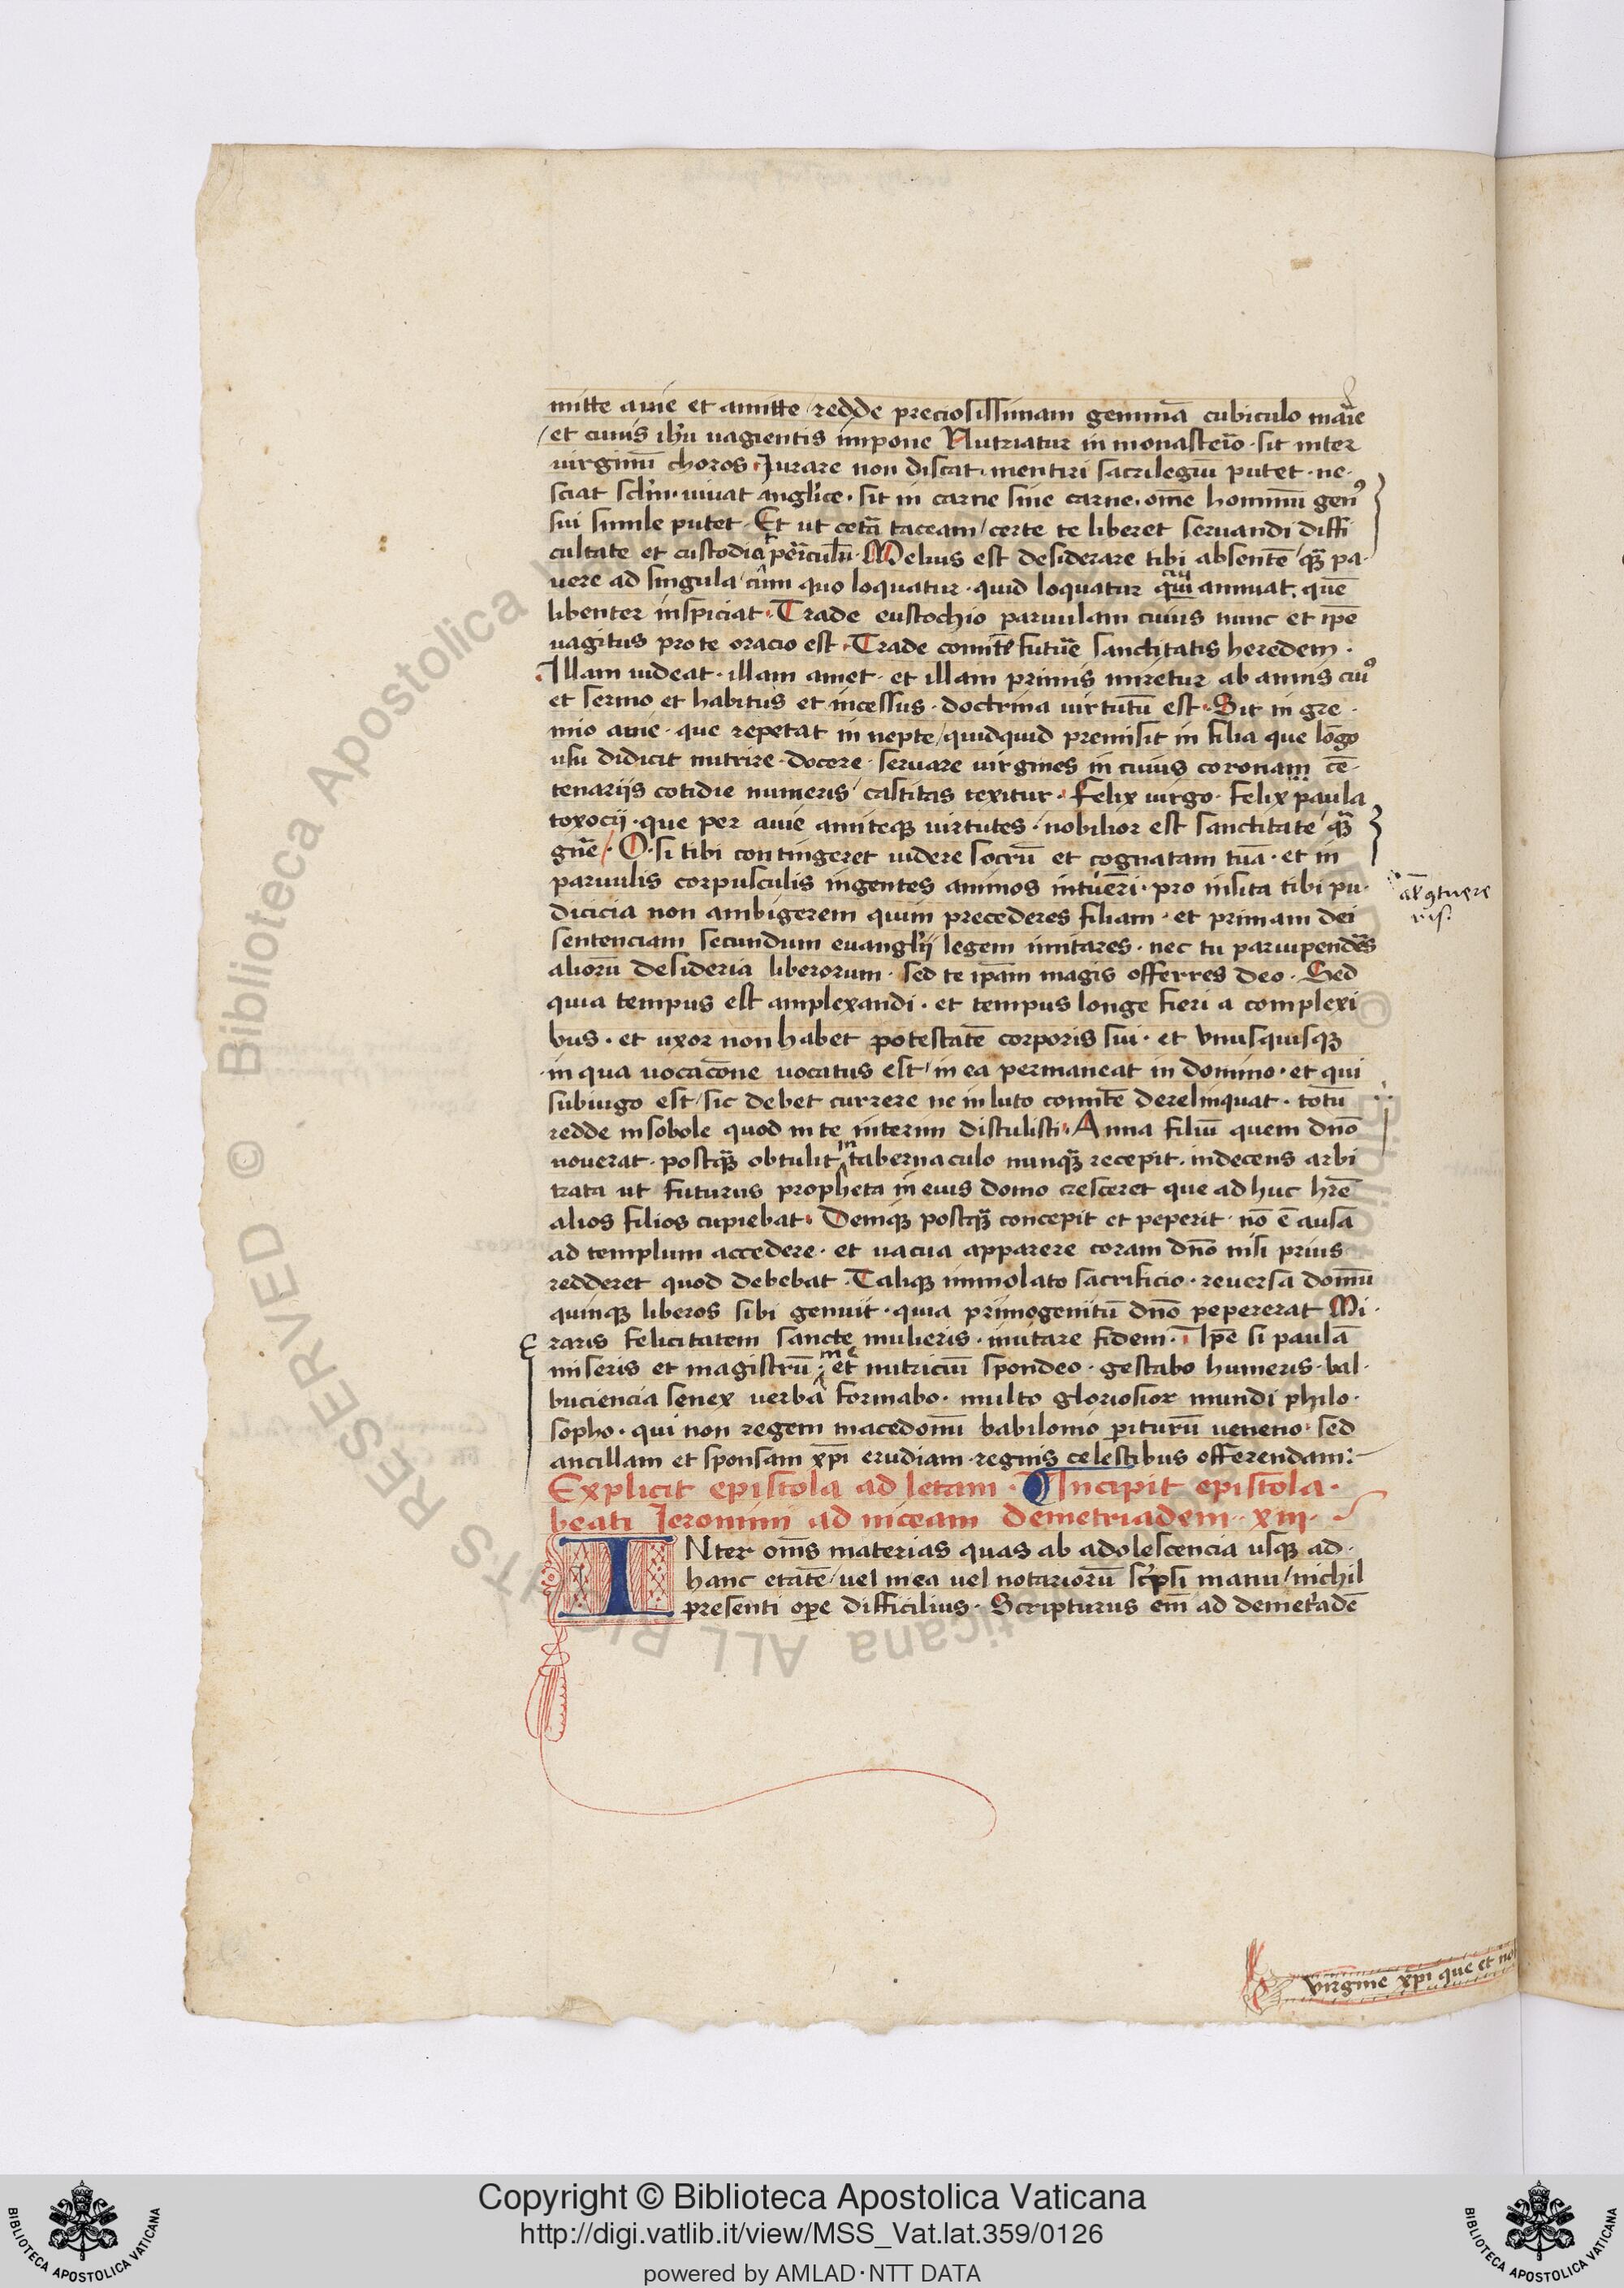 mitte auie et amitte / redde preciosissimam gemmā cubiculo mar̄ie
/ et cunis ihū uagientis impone Nutriatur in monasterio · sit inter
virginū choros · Iurare non discat · mentiri sacrilegiū putet · ne·
sciat sclm̄ · uiuat anglice · sit in carne sine carne · om̄e hominū gen⁹
sui simile putet · Et ut cet̄a taceam / certe te liberet seruandi diffi
cultate et custodie periculū · Melius est desiderare tibi absentē / qȝ pa·
uere ad singula / cum quo loquatur · quid loquatur cui annuat · quē
libenter inspiciat · Trade eustochio paruulam cuius nunc et ip̄e
uagitus pro te oracio est · Trade comitē futur̄e sanctitatis heredem ·
Illam uideat · illam amet · et illam primis miretur ab annis cui⁹
et sermo et habitus et incessus · doctrina virtutū est · Sit in gre·
mio auie · que repetat in nepte / quidquid premisit in filia que lōgo
usu didicit nutrire · docere · seruare virgines in cuius coronam cē·
tenariis cotidie numeris / castitas texitur · Felix uirgo · Felix paula
toxocij · que per auie amiteqȝ virtutes · nobilior est sanctitate / qȝ
gn̄e / · O · si tibi contingeret uidere socrū et cognatam tuā · et in
paruulis corpusculis ingentes animos intueri · pro insita tibi pu·
dicicia non ambigerem quin precederes filiam · et primam dei
sentenciam secundum euanglij legem mutares · nec tu paruipendēs
aliorū desideria liberorum · sed te ip̄am magis offerres deo · Sed
quia tempus est amplexandi · et tempus longe fieri a complexi
bus · et uxor non habet potestatē corporis sui · et vnusquisqȝ
in qua uocac̄one uocatus est / in ea permaneat in domino · et qui
sub iugo est / sic debet currere ne in luto comitē derelinquat · totū
redde in sobole quod in te interim distulisti · Anna filiū quem dn̄o
nouerat · postqȝ obtulit in tabernaculo nunqȝ recepit · indecens arbi
trata ut futurus propheta in eius domo cresceret que ad huc hr̄e
alios filios cupiebat · Deniqȝ postqȝ concepit et peperit nō ē ausa
ad templum accedere · et uacua apparere coram dn̄o nisi prius
redderet quod debebat · Taliqȝ immolato sacrificio · reuersa domū
quinqȝ liberos sibi genuit · quia primogenitū dn̄o pepererat Mi·
raris felicitatem sancte mulieris · imitare fidem · Ip̄e si paulā
miseris et magistrū me et nutriciū spondeo · gestabo humeris · bal·
buciencia senex verba formabo · multo gloriosior mundi philo·
sopho · qui non regem macedonū babilonio periturū ueneno · sed
ancillam et sponsam xp̄i erudiam · regnis celestibus offerendam :
Explicit epistola ad letam · Incipit epistola ·
beati Ieronimi ad niceam demetriadem · xiii ·
INter om̄s materias quas ab adolescencia usqȝ ad·
hanc etatē / uel mea uel notariorū scripsi manu / nichil
presenti ope difficilius · Scripturus em̄ ad demetradē
virginē xp̄i que et no